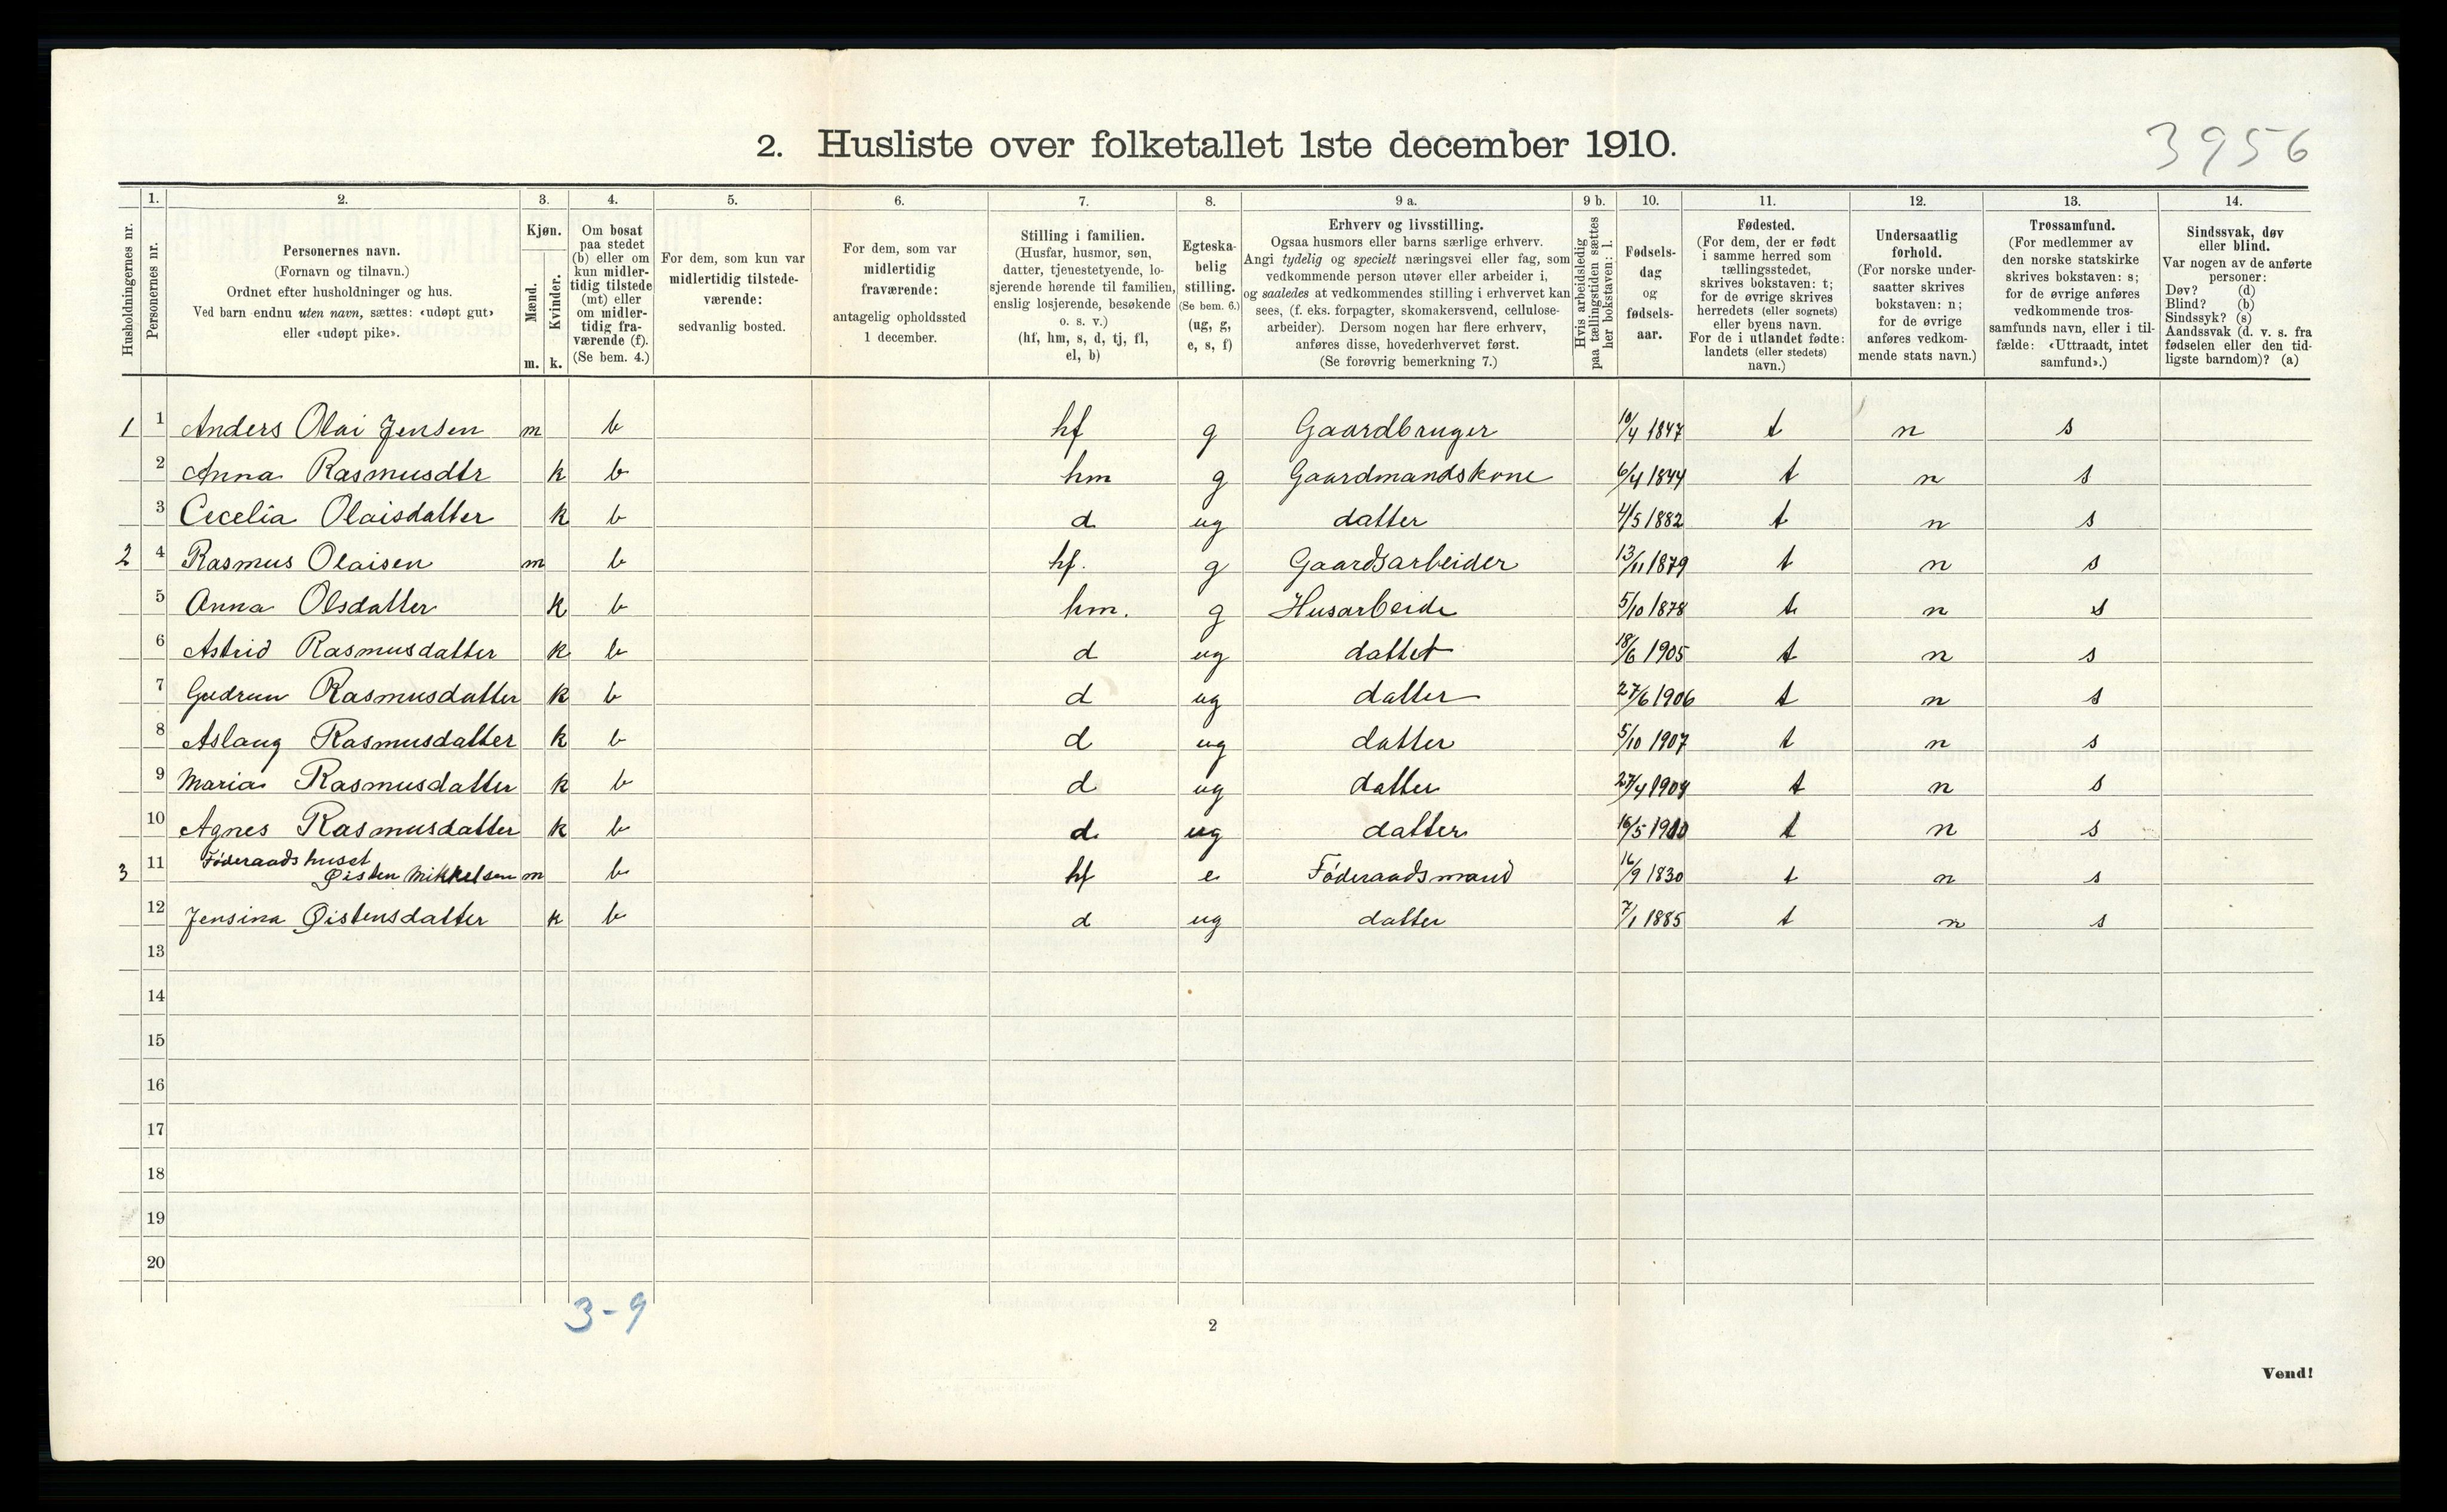 2. Husliste over folketallet 1ste december 1910.
3956
Husholdningernes nr.
1.
Personernes nr.
2.
Personernes navn.
(Fornavn og tilnavn.)
Ordnet efter husholdninger og hus.
Ved barn endnu uten navn, sættes: «udøpt gut»
eller «udøpt pike».
3.
Kjøn.
Mænd.
Kvinder.
m. k.
4.
Om bosat
paa stedet
(b) eller om
kun midler-
tidig tilstede
(mt) eller
om midler-
tidig fra-
værende (f).
(Se bem. 4.)
5.
For dem, som kun var
midlertidig tilstede-
værende:
sedvanlig bosted.
6.
For dem, som var
midlertidig
fraværende:
antagelig opholdssted
1 december.
7.
Stilling i familien.
(Husfar, husmor, søn,
datter, tjenestetyende, lo-
sjerende hørende til familien,
enslig losjerende, besøkende
o. s. v.)
(hf, hm, s, d, tj, fl,
el, b)
8.
Egteska-
belig
stilling.
(Se bem. 6.)
(ug, g,
e, s, f)
9 a.
Erhverv og livsstilling.
Ogsaa husmors eller barns særlige erhverv.
Angi tydelig og specielt næringsvei eller fag, som
vedkommende person utøver eller arbeider i,
og saaledes at vedkommendes stilling i erhvervet kan
sees, (f. eks. forpagter, skomakersvend, cellulose-
arbeider). Dersom nogen har flere erhverv,
anføres disse, hovederhvervet først.
(Se forøvrig bemerkning 7.)
9 b.
Hvis arbeidsledig
paa tællingstiden sættes
her bokstaven: l.
10.
Fødsels-
dag
og
fødsels-
aar.
11.
Fødested.
(For dem, der er født
i samme herred som
tællingsstedet,
skrives bokstaven: t;
for de øvrige skrives
herredets (eller sognets)
eller byens navn.
For de i utlandet fødte:
landets (eller stedets)
navn.)
12.
Undersaatlig
forhold.
(For norske under-
saatter skrives
bokstaven: n;
for de øvrige
anføres vedkom-
mende stats navn.)
13.
Trossamfund.
(For medlemmer av
den norske statskirke
skrives bokstaven: s;
for de øvrige anføres
vedkommende tros-
samfunds navn, eller i til-
fælde: «Uttraadt, intet
samfund».)
14.
Sindssvak, døv
eller blind.
Var nogen av de anførte
personer:
Døv? (d)
Blind? (b)
Sindssyk? (s)
Aandssvak (d. v. s. fra
fødselen eller den tid-
ligste barndom)? (a)
1 1 Anders Olai Jensen m b hf g Gaardbruger 10/4 1847 t n s
2 Anna Rasmusdtr k b hm g Gaardmandskone 6/4 1844 t n s
3 Cecelia Olaisdatter k b d ug datter 4/5 1882 t n s
2 4 Rasmus Olaisen m b hf. g Gaardsarbeider 13/11 1879 t n s
5 Anna Olsdatter k b hm. g Husarbeide 5/10 1878 t n s
6 Astrid Rasmusdatter k b d ug datter 18/6 1905 t n s
7 Gudrun Rasmusdatter k b d ug datter 27/6 1906 t n s
8 Aslaug Rasmusdatter k b d ug datter 5/10 1907 t n s
9 Maria Rasmusdatter k b d ug datter 27/4 1909 t n s
10 Agnes Rasmusdatter k b d. ug datter 16/5 1910 t n s
Föderaadshuset
3 11 Øisten Mikkelsen m b hf e Föderaadsmand 16/9 1830 t n s
12 Jensina Øistensdatter k b d ug datter 7/1 1885 t n s
13
14
15
16
17
18
19
20
3-9
2
Vend!